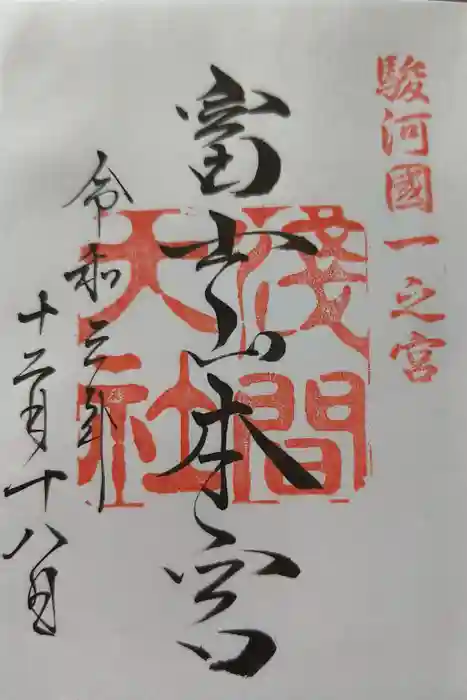 駿河國一之宮
富士山本宮
淺間
大社
令和三年
十二月十八日